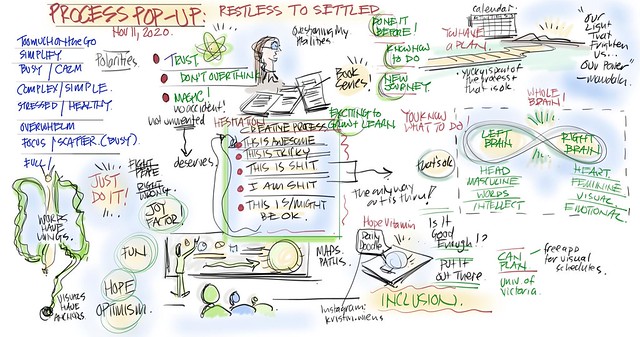 PROCESS POP-UP:
RESTLESS TO SETTLED
NOV 11, 2020.
TOO MUCH ON THE GO
SIMPLIFY.
BUSY / CALM
COMPLEX/SIMPLE.
STRESSED / HEALTHY
OVERWHELM
FOCUS / SCATTER. (BUSY)
FULL!
Polarities.
TRUST
DON'T OVERTHINK
MAGIC!
no accident!
not unwanted
deserves.
Questioning My
Realities
Book
Series!
DONE IT
BEFORE!
KNOW HOW
TO DO
NEW
JOURNEY.
EXCITING to
GROW & LEARN
calendar
YOU HAVE
A PLAN.
yucky is part of
the process
that is ok.
"OUR
Light
That
Frighten
us...
Our Power"
-mandela.
HESITATION
CREATIVE PROCESS
THIS IS AWESOME
THIS IS TRICKY
THIS IS SHIT
I AM SHIT
THIS IS/MIGHT
BE OK.
YOU KNOW
WHAT TO DO!
that's ok
The only way
out is thru!
WHOLE
BRAIN!
LEFT
BRAIN
RIGHT
BRAIN
HEAD
MASCULINE
WORDS
INTELLECT
HEART
FEMININE
VISUAL
EMOTIONAL.
WORDS
HAVE
WINGS.
VISUALS
HAVE
ANCHORS.
JUST
DO IT!
RIGHT
WRONG.
JOY
FACTOR
FUN
HOPE
OPTIMISM.
MAPS.
PATHS.
Hope Vitamin
Daily
Doodle
Is It
Good
Enough!?
PUT IT
OUT There.
INCLUSION.
Instagram:
kristin.wiens
CAN
PLAN
UNIV. OF
VICTORIA.
free app
for visual
schedules.